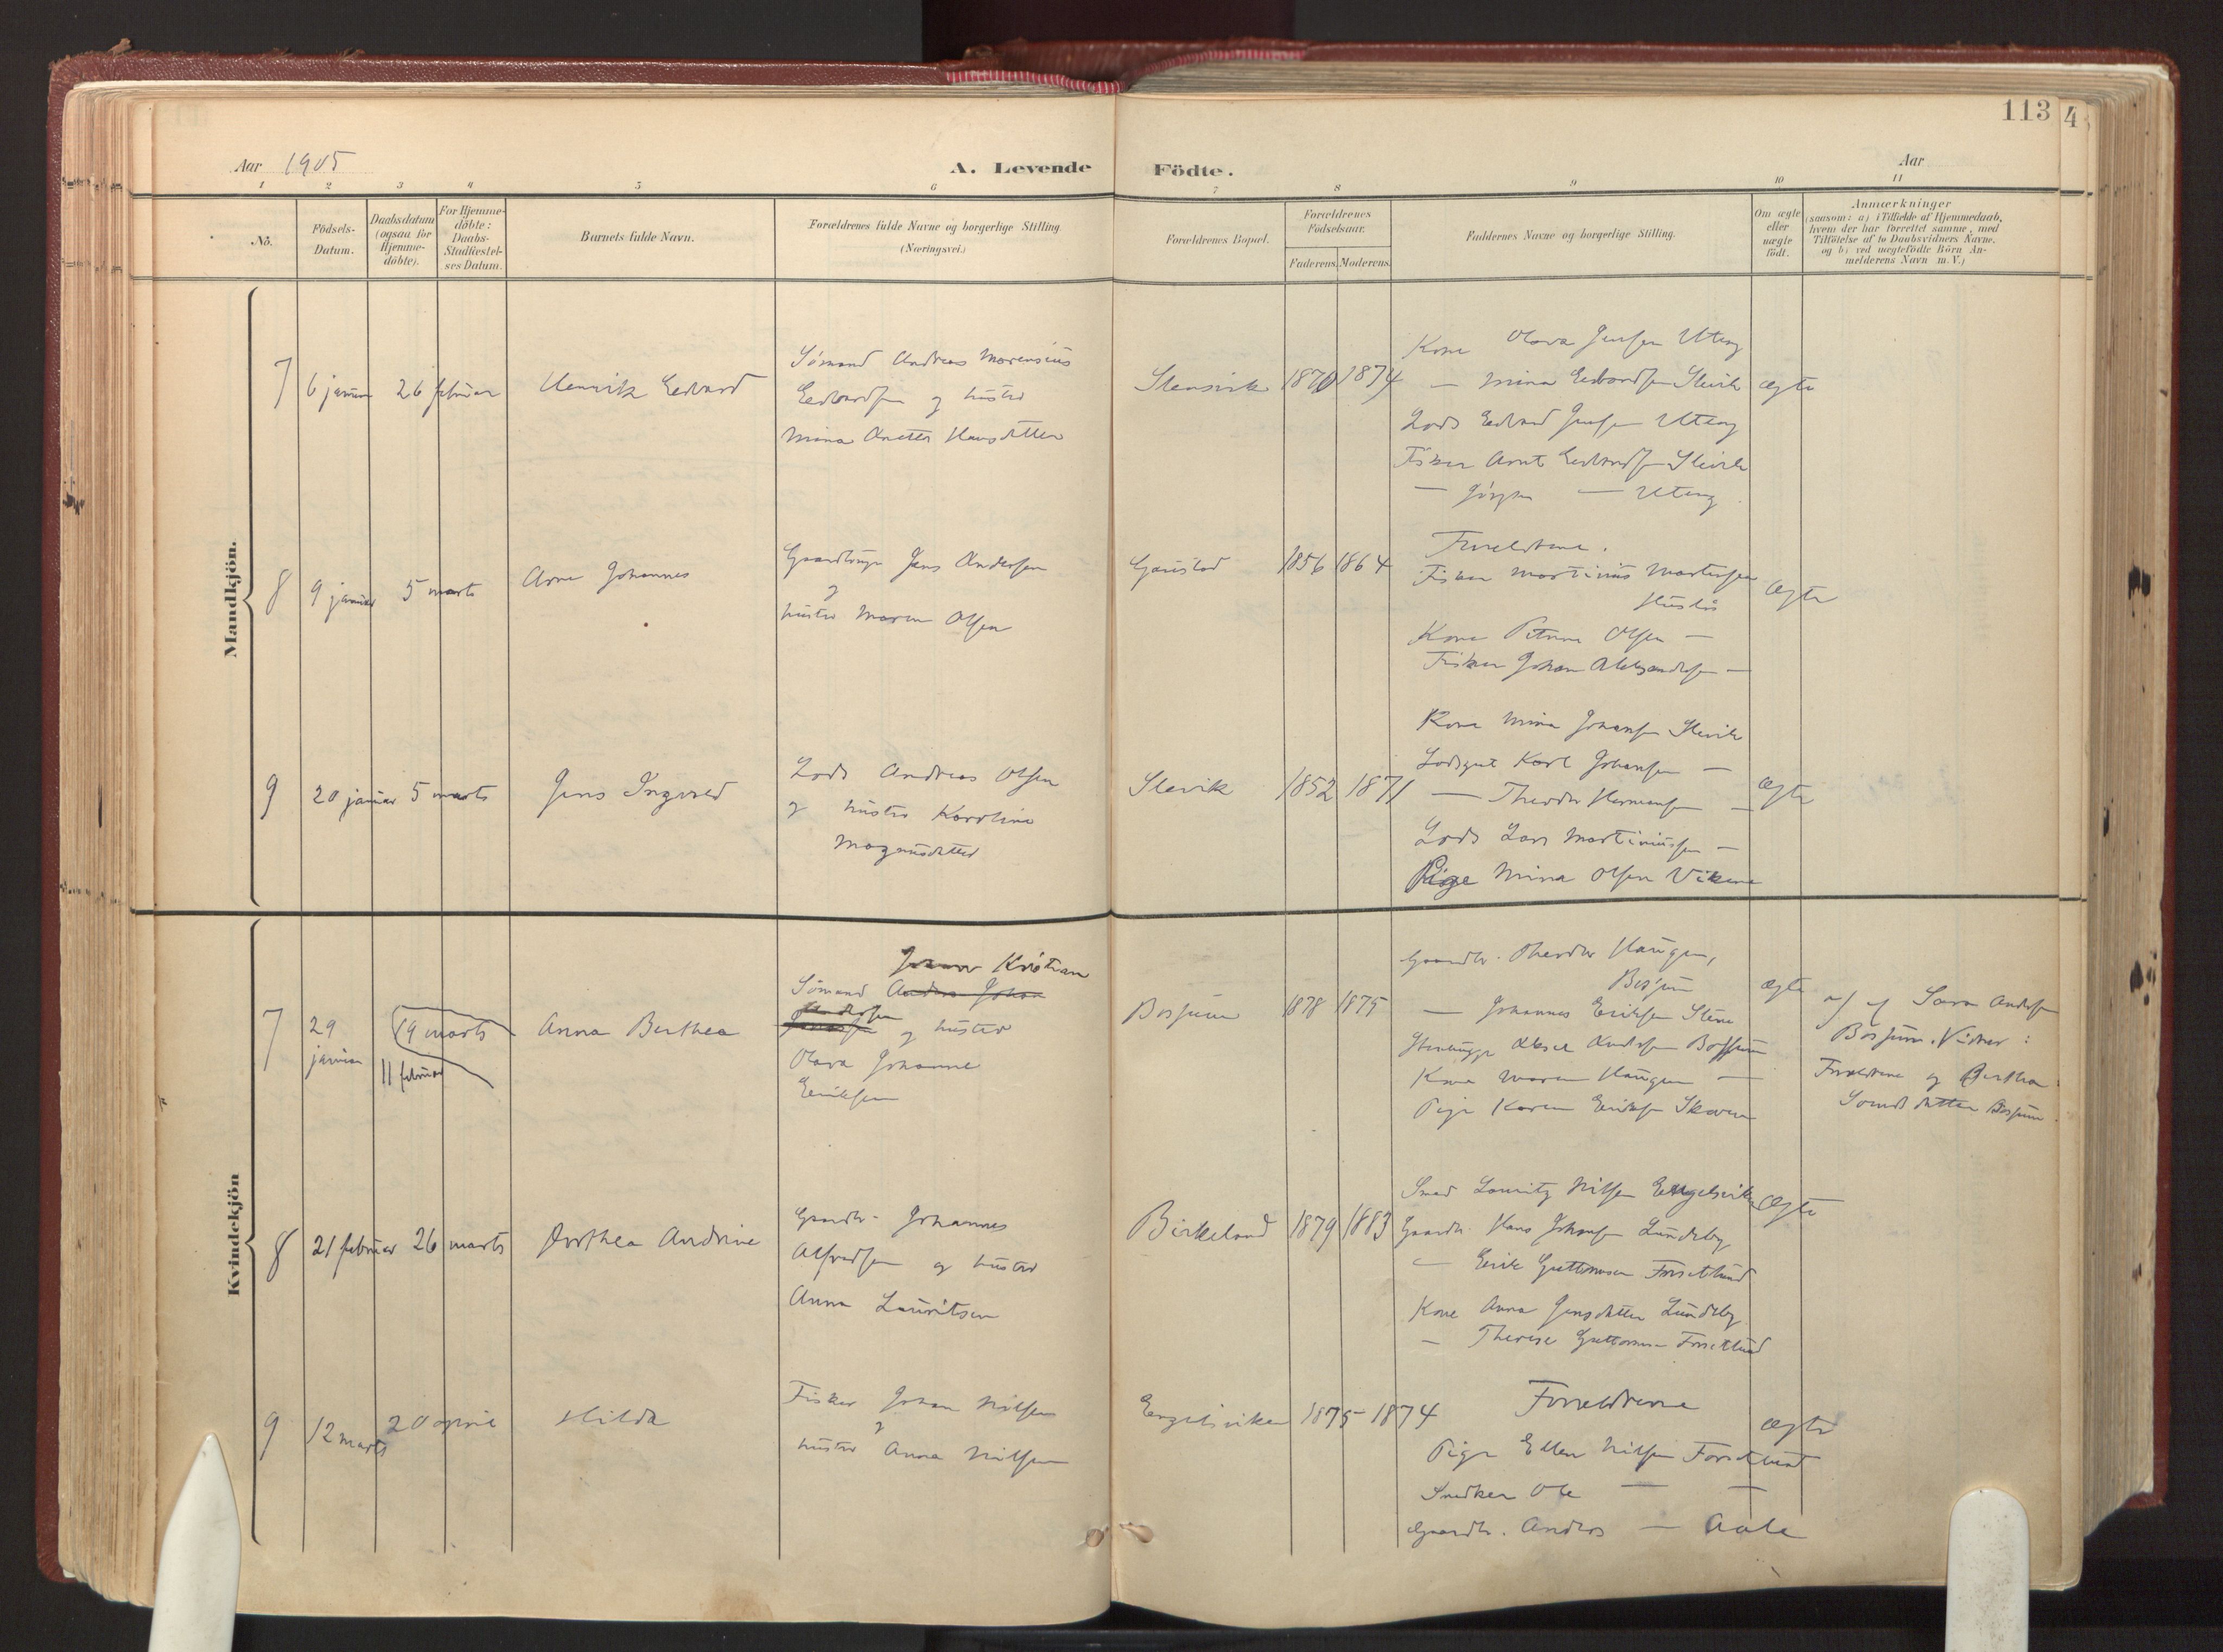 113
4
Aar 1905
A. Levende
Födte.
Aar
1 2 3 4 5 6 7 8 9 10 11
No.
Födsels-Datum.
Daabsdatum (ogsaa för Hjemme-döbte).
For Hjemme-döbte: Daabs-Stadfæstel-ses Datum.
Barnets fulde Navn.
Forældrenes fulde Navne og borgerlige Stilling. (Næringsvei.)
Forældrenes Bopæl.
Forældrenes Födselsaar.
Faderens. Moderens.
Faddernes Navne og borgerlige Stilling.
Om ægte eller uægte födt.
Anmærkninger
(saasom: a) i Tilfælde af Hjemmedaab,
hvem der har forrettet samme, med
Tilföielse af to Daabsvidners Navne.
og b) ved uægtefödte Börn An-
melderens Navn m. V.)
Mandkjön.
7
6 januar
26 februar
Henrik Edvard
Sömand Andreas
Edvardsen og hustru
Mina Anette Hansdatter
1870
1874
Kone Olava Jensen Uteng
— Mina Edvardsen Slevik
Lods Edvard Jensen Uteng
Fisker Arnt Edvardsen Slevik
— Jörgen — Uteng
ægte
8
9 januar
5 marts
Arne Johannes
Gaardbruger Jens Andersen
og
hustru Maren Olsen
1856
1864
Forældrene.
Fisker Martinius Martinsen
Kone Petrine Olsen —
Fisker Johan Aleksandersen —
ægte
9
20 januar
5 marts
Jens Ingvald
Lods Andreas Olsen
og hustru Karoline
Magnusdatter
Slevik
1852
1871
Kone Mina Johansen Slevik
Lodsgut Karl Johansen —
— Theodor Hermansen —
Lods Lars Martiniussen —
Pige Mina Olsen Vikene
ægte
Kvindekjön
7
29 januar
19 marts
11 februar
Anna Berthea
Kristian
Sömand Anders Johan
og hustru
Olava Johanne
Eriksen
Bossum
1878
1875
Gaardbr. Theodor Haugen,
Bossum
— Johannes Eriksen Stene
Stenhugger Aksel Andersen Bossum
Kone Maren Haugen —
Pige Karen Eriksen Skaaren
ægte
af Sara Andersen
Bossum. Vidner:
Forældrene og Berthea
Bossum.
8
21 februar
26 marts
Dorthea Andrine
Gaardbr. Johannes
Alfredsen og hustru
Anna Lauritsen
Birkeland
1879
1883
Smed Lauritz Nilsen Engelsviken
Gaardbr. Hans Johansen Lundeby
— Erik Guttormsen Forsetlund
Kone Anna Jensdatter Lundeby
— Therese Guttormsen Forsetlund
ægte
9
12 marts
20 april
Hilda
Fisker Johan Nilsen
og
hustru Anna Nilsen
Engelsviken
1875
1874
Forældrene
Pige Ellen Nilsen Forsetlund
Snedker Ole — —
Gaardbr. Andreas — Aale
ægte